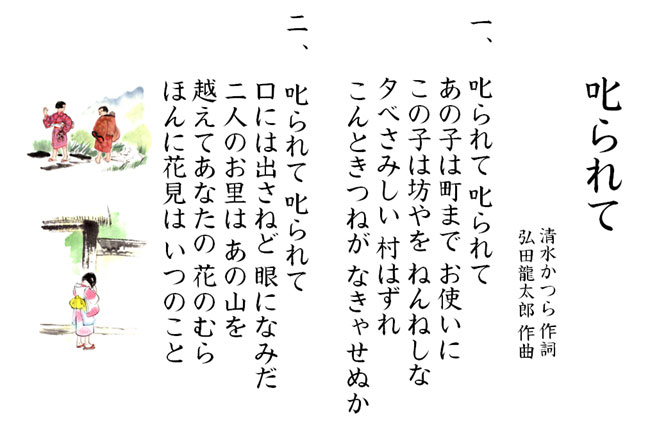 叱られて
清水かつら 作詞
弘田龍太郎 作曲
一、
叱られて 叱られて
あの子は町まで お使いに
この子は坊やを ねんねしな
夕べさみしい 村はずれ
こんときつねが なきゃせぬか
二、
叱られて 叱られて
口には出さねど 眼になみだ
二人のお里は あの山を
越えてあなたの 花のむら
ほんに花見は いつのこと